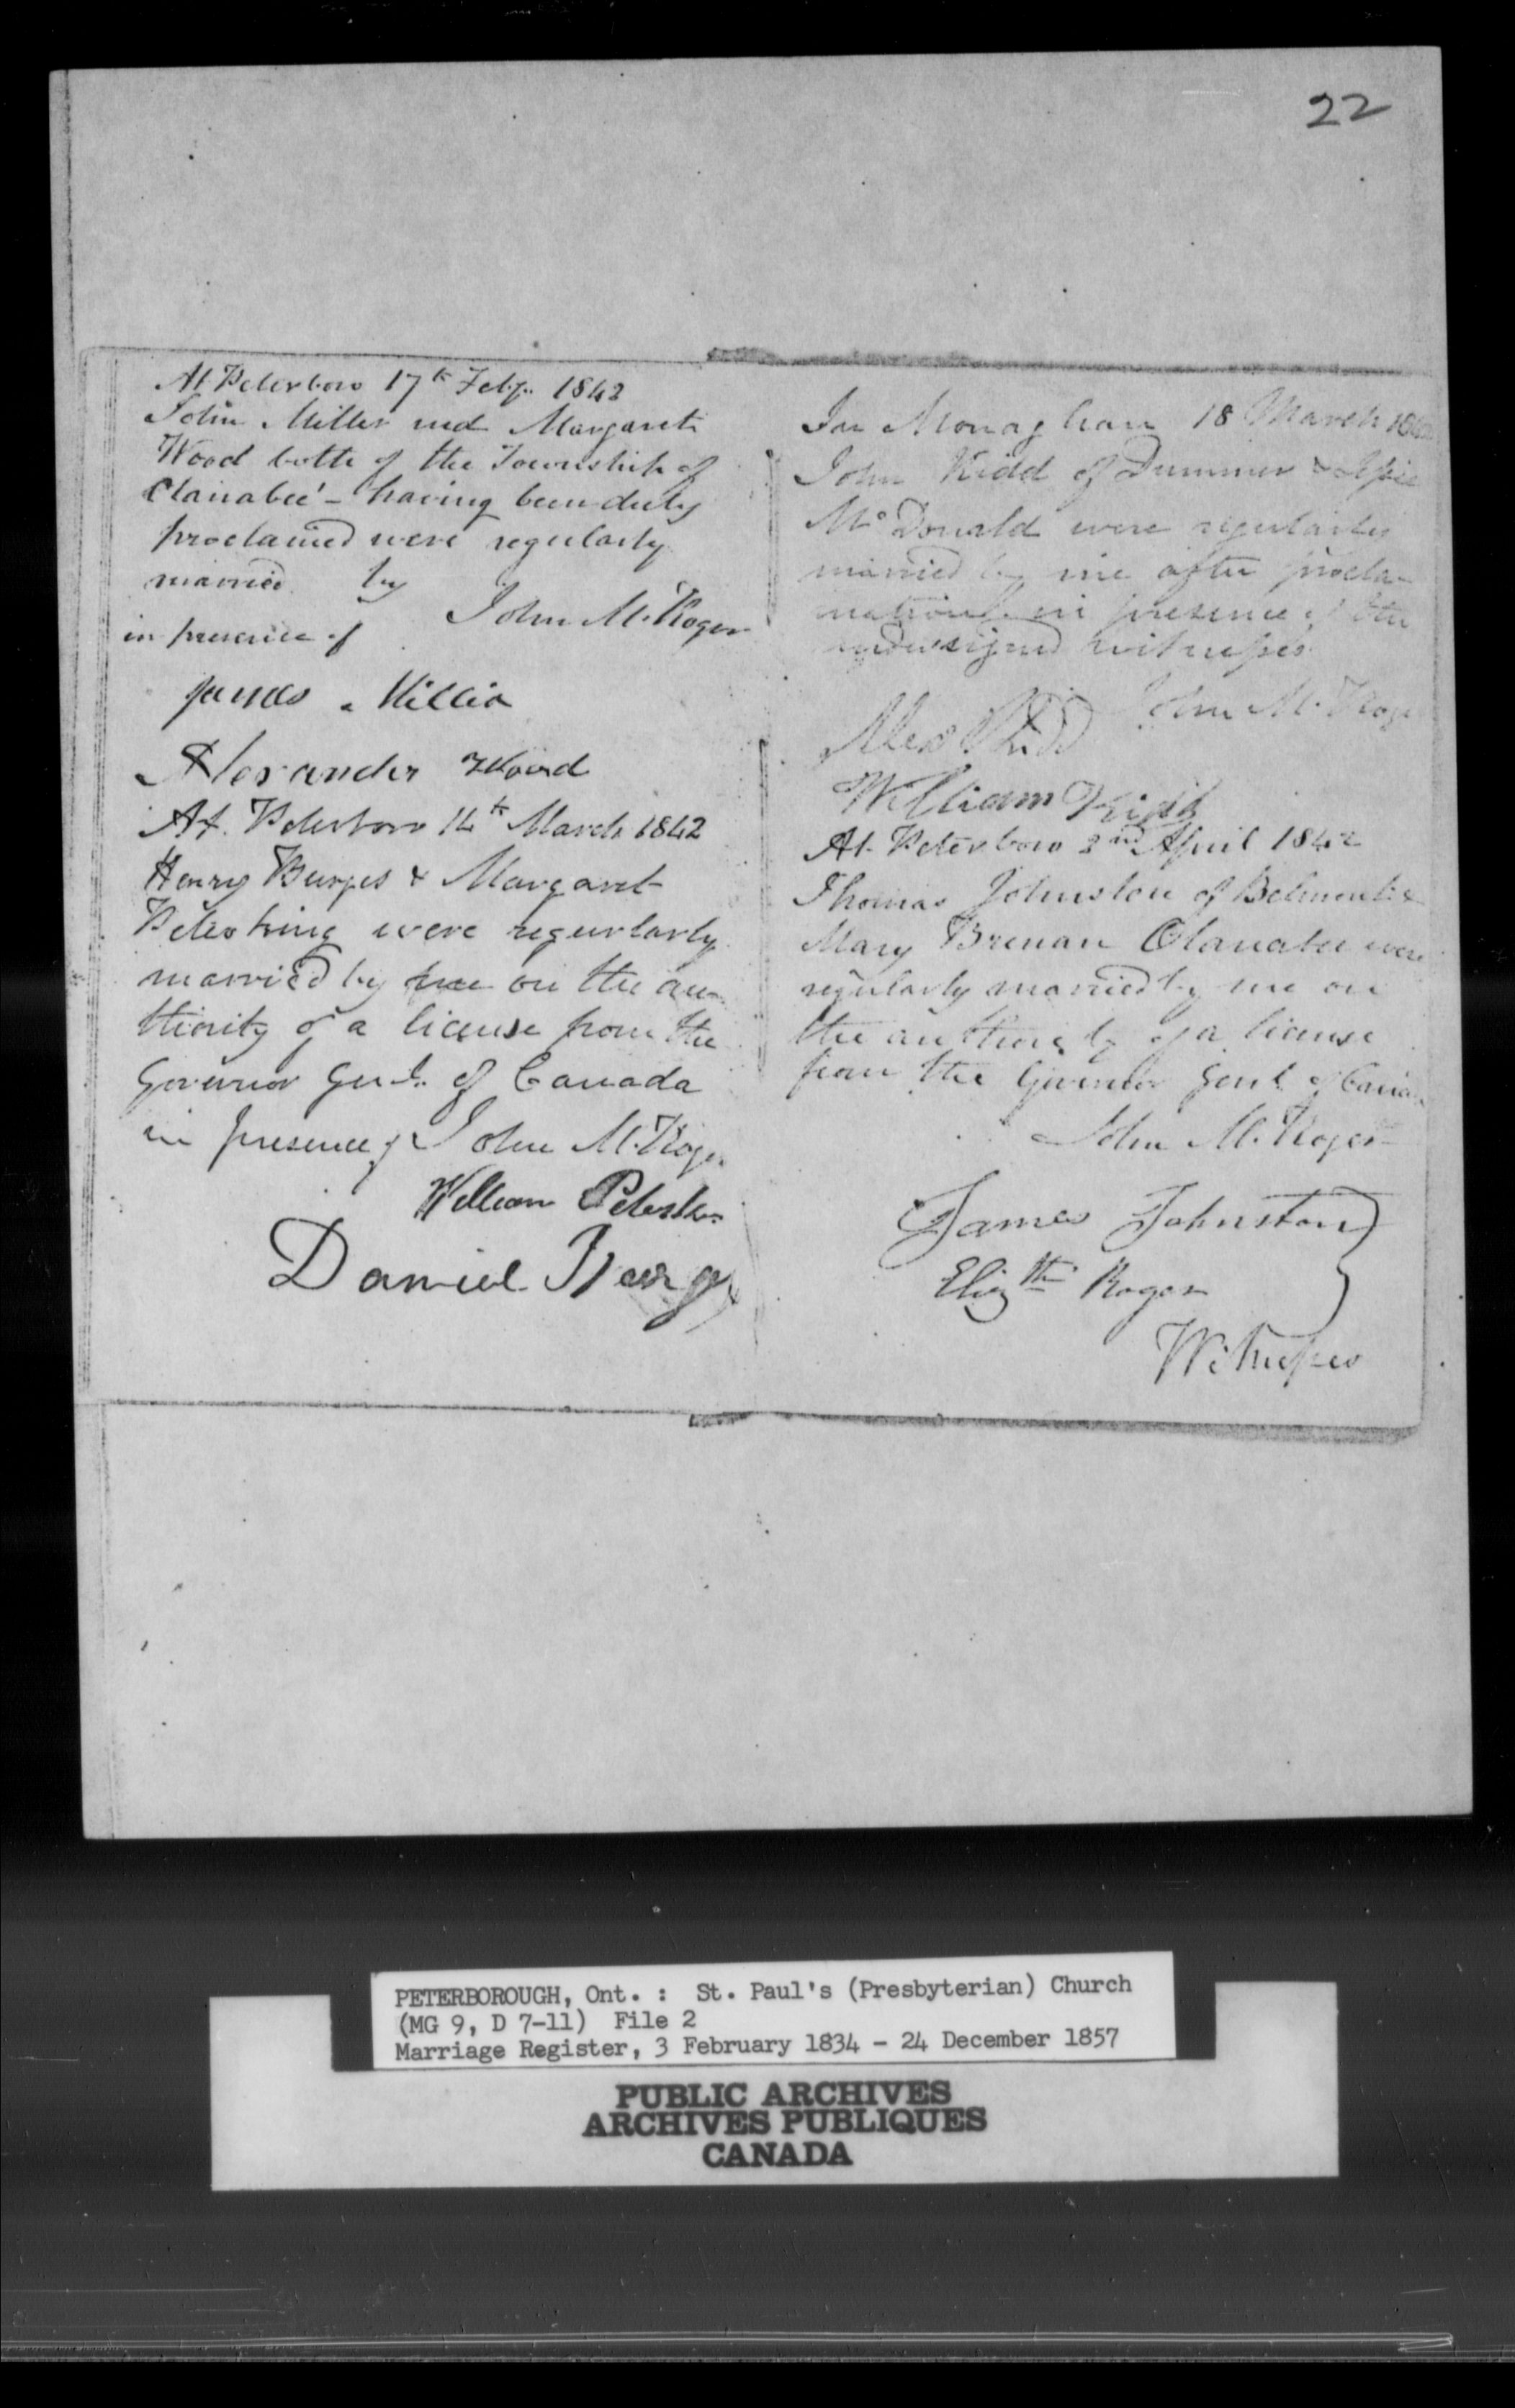 22
At Peterboro 17th Feby. 1842
John Miller and Margaret
Wood both of the Township of
Otanabee - having been duly
proclaimed were regularly
married by
John M. Roger
in presence of
James Miller
Alexander Wood
At Peterboro 14th March 1842
Henry Burges & Margaret
were regurlarly
married by me on the au-
thority of a license from the
Governor Genl. of Canada
in presence of John M. Roger
William
Daniel
In Monaghan 18 March 1842
John Kidd of Dummer &
McDonald were regularly
married by me after procla-
mation in presence of the
undersigned witnesses
John M. Roger
Alexr Kidd
William Kidd
At Peterboro 2nd April 1842
Thomas Johnston of Belmont &
Mary Brenan Otanabee were
regularly married by me on
the authority of a license
from the Governor Genl of Canada
John M. Roger
James Johnston
Elizth Roger
Witnesses
PETERBOROUGH, Ont. : St. Paul's (Presbyterian) Church
(MG 9, D 7-11) File 2
Marriage Register, 3 February 1834 - 24 December 1857
PUBLIC ARCHIVES
ARCHIVES PUBLIQUES
CANADA